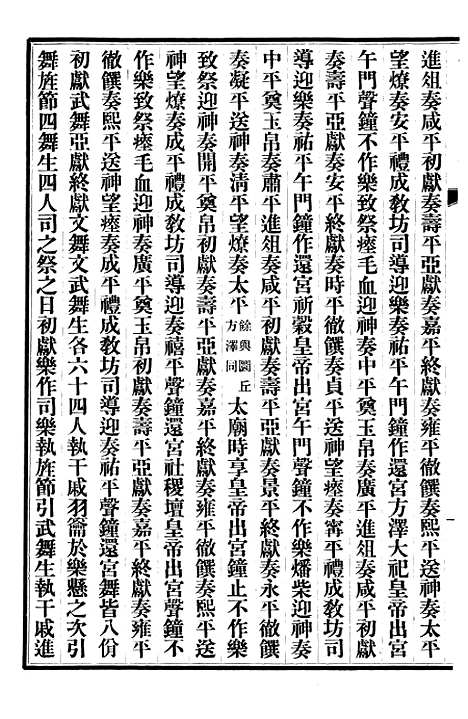 進俎奏咸平初獻奏壽平亞獻奏嘉平終獻奏雍平徹饌奏熙平送神奏太平
望燎奏安平禮成教坊司導迎樂奏祐平午門鐘作還宮方澤大祀皇帝出宮
午門聲鐘不作樂致祭瘞毛血迎神奏中平奠玉帛奏廣平進俎奏咸平初獻
奏壽平亞獻奏安平終獻奏時平徹饌奏貞平送神望瘞奏寧平禮成教坊司
導迎樂奏祐平午門鐘作還宮祈穀皇帝出宮午門聲鐘不作樂燔柴迎神奏
中平奠玉帛奏肅平進俎奏咸平初獻奏壽平亞獻奏景平終獻奏永平徹饌
奏凝平送神奏清平望燎奏太平餘與圜丘方澤同太廟時享皇帝出宮鐘止不作樂
致祭迎神奏開平奠帛初獻奏壽平亞獻奏嘉平終獻奏雍平徹饌奏熙平送
神望燎奏成平禮成教坊司導迎奏禧平聲鐘還宮社稷壇皇帝出宮聲鐘不
作樂致祭瘞毛血迎神奏廣平奠玉帛初獻奏壽平亞獻奏嘉平終獻奏雍平
徹饌奏熙平送神望瘞奏成平禮成教坊司導迎奏祐平聲鐘還宮舞皆八佾
初獻武舞亞獻終獻文舞文武舞生各六十四人執干戚羽籥於樂懸之次引
舞旌節四舞生四人司之祭之日初獻樂作司樂執旌節引武舞生執干戚進